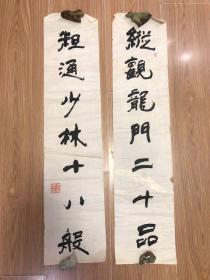 縱觀龍門二十品
粗通少林十八般